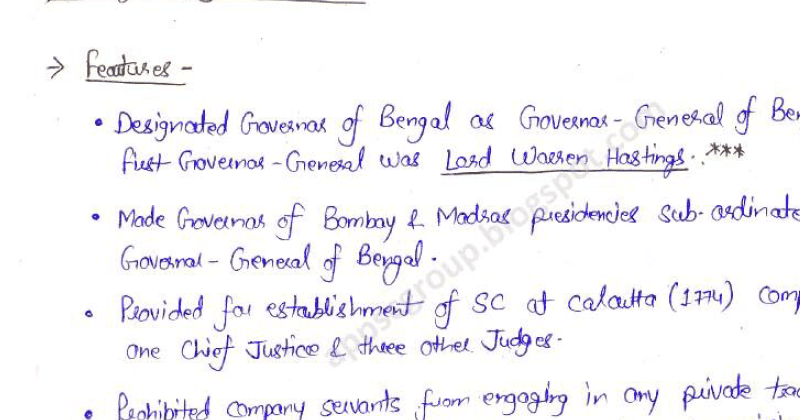 → Features -
• Designated Governor of Bengal as Governor-General of Be
first Governor-General was Lord Warren Hastings. ***
• Made Governor of Bombay & Madras presidencies sub-ordinate
Governor-General of Bengal.
• Provided for establishment of SC at Calcutta (1774) comp
one Chief Justice & three other Judges.
• Prohibited company servants from engaging in any private tra
appscgroup.blogspot.com